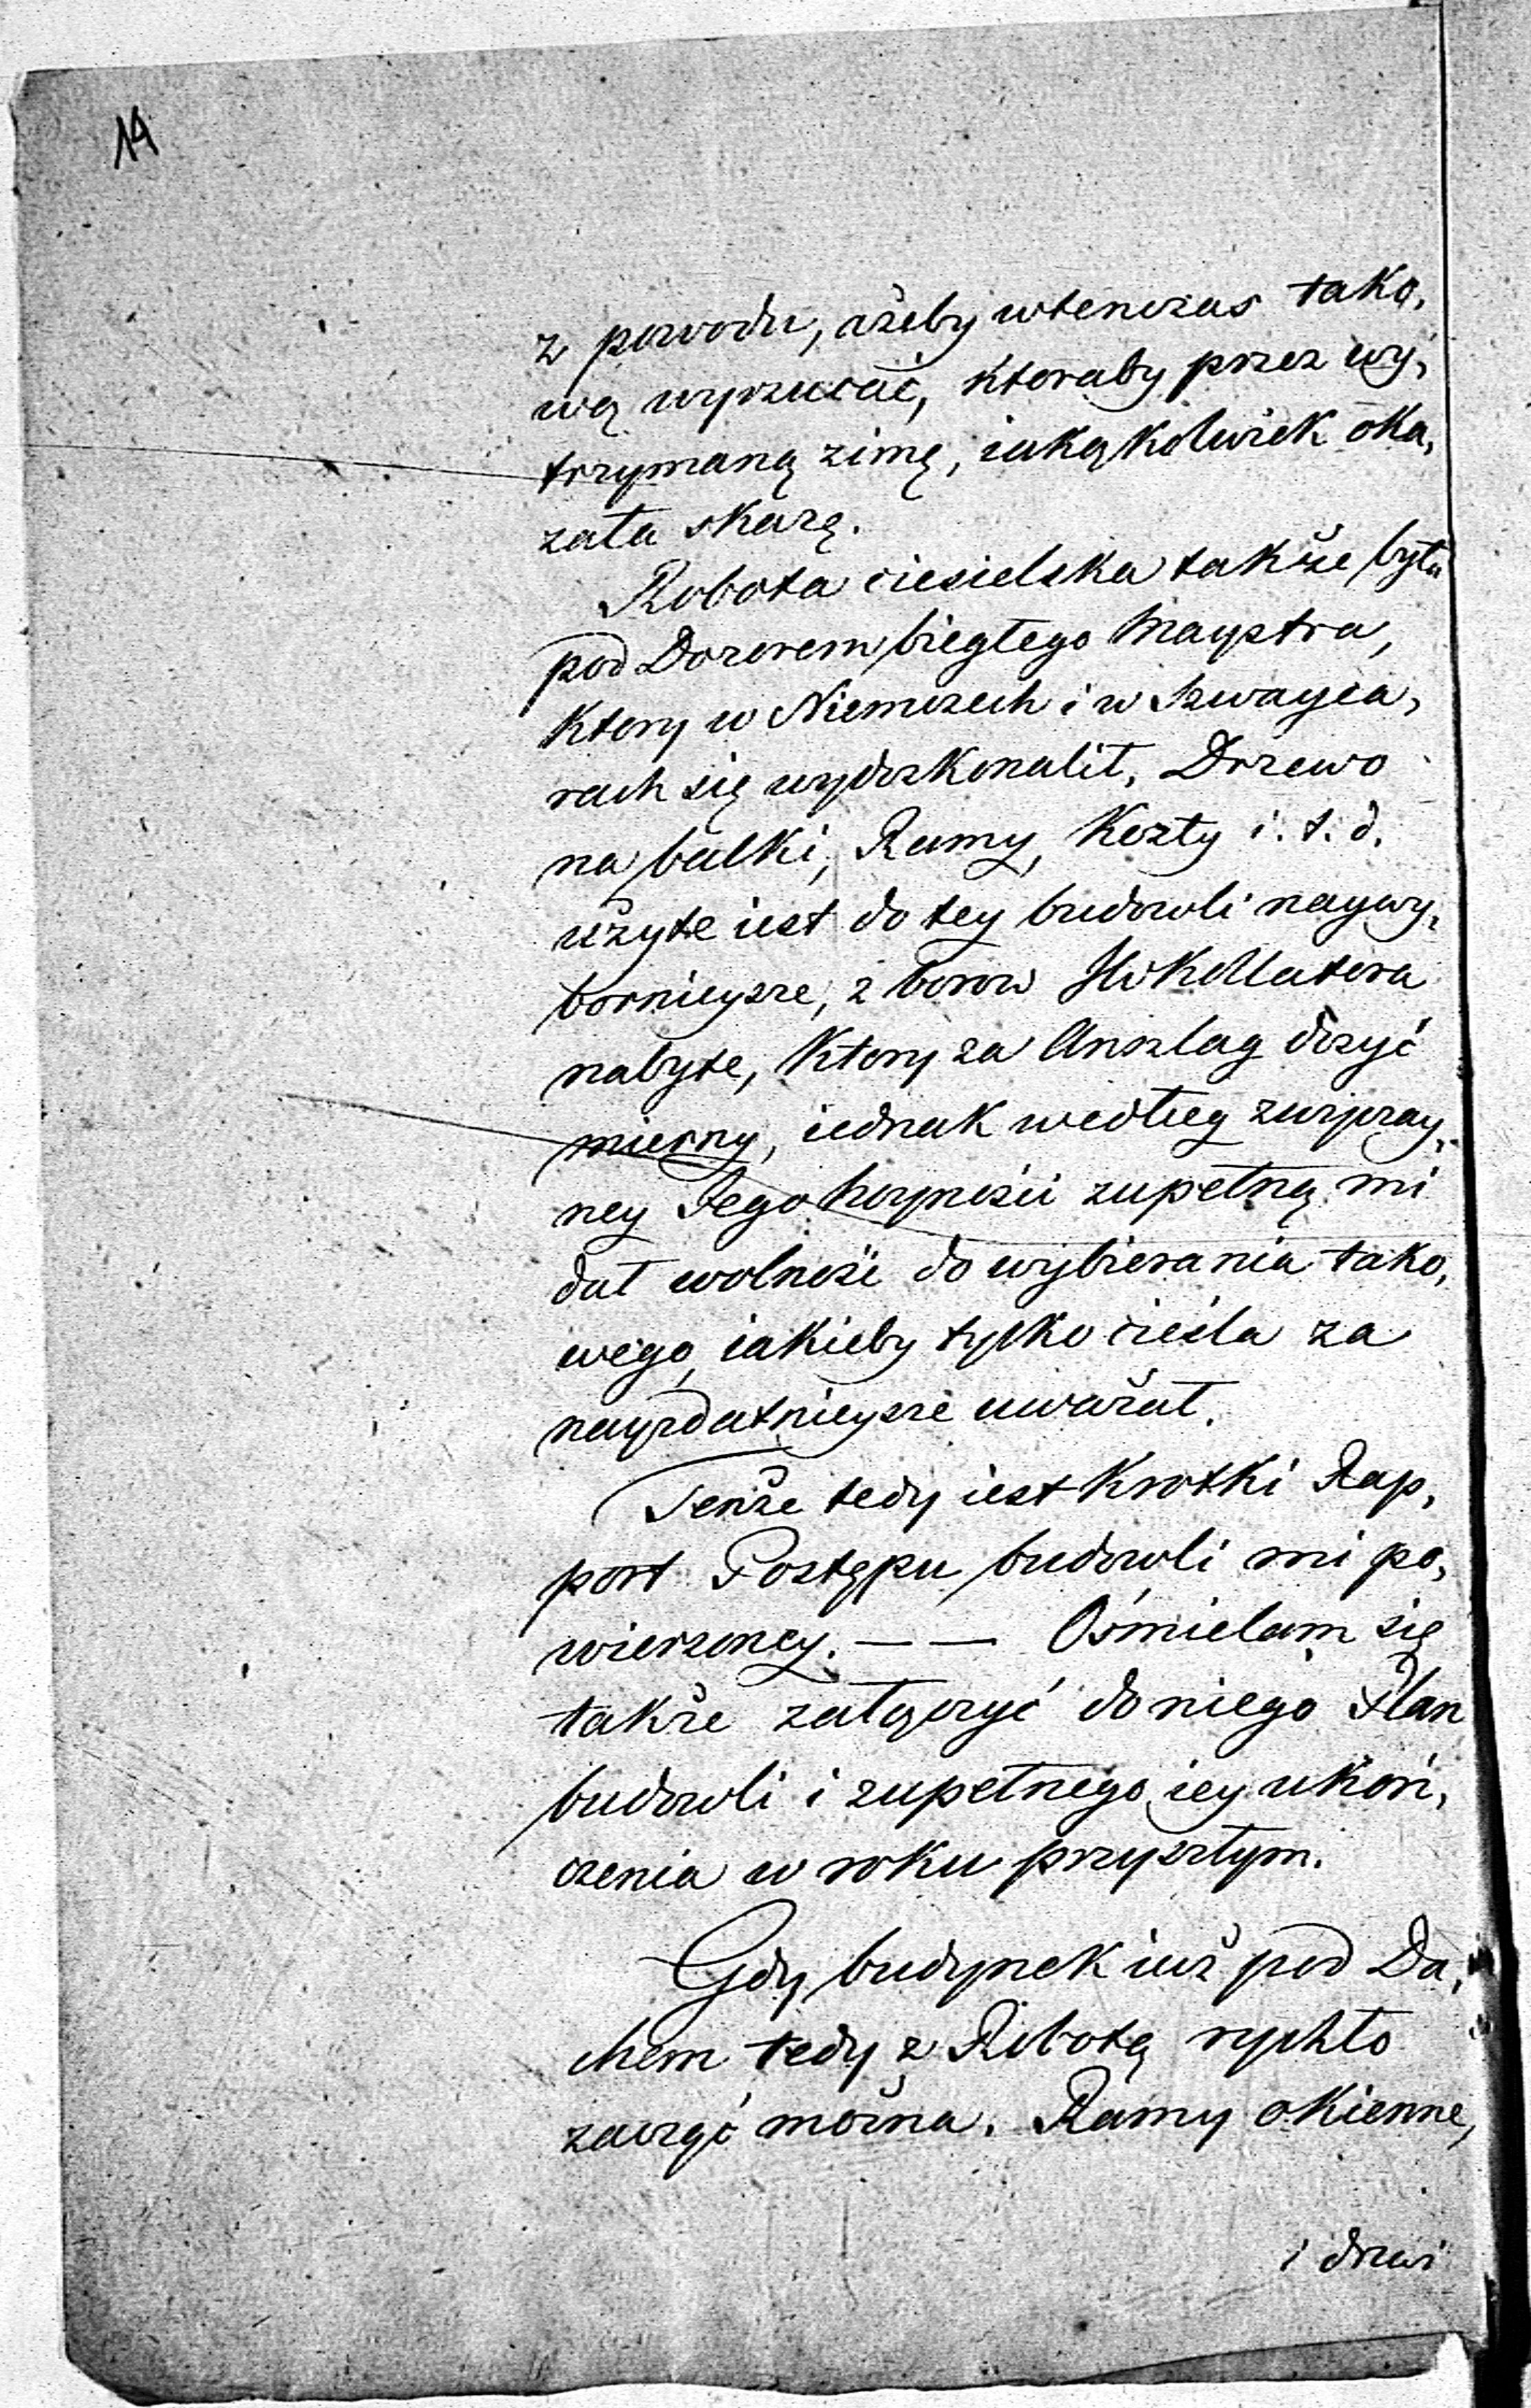 14
z powodu, ażeby wtenczas tako,
wą wyrzucać, ktoraby przez wy,
trzymaną zimę, iakąkolwiek oka,
zała skazę.
Robota ciesielska także była
pod Dozorem biegłego Maystra,
ktory w Niemczech i w Szwayca,
rach się wydoskonalił, Drzewo
na balki, Ramy, Kozły i. t. d.
użyte iest do tey budowli naywy,
bornieysze, z borow JW Kollatora
nabyte, ktory za Anszlag dosyć
mierny, iednak według zwyczay,
ney Jego hoyności zupełną mi
dał wolność do wybierania tako,
wego, iakieby tylko cieśla za
nayzdatnieysze uważał.
Tenże tedy iest krotki Rap,
port Postępu budowli mi po,
wierzoney. — — Ośmielam się
także załączyć do niego Plan
budowli i zupełnego iey ukoń,
czenia w roku przyszłym.
Gdy budynek iuż pod Da,
chem tedy z Robotą rychło
zacząć można. Ramy okienne,
i drzwi